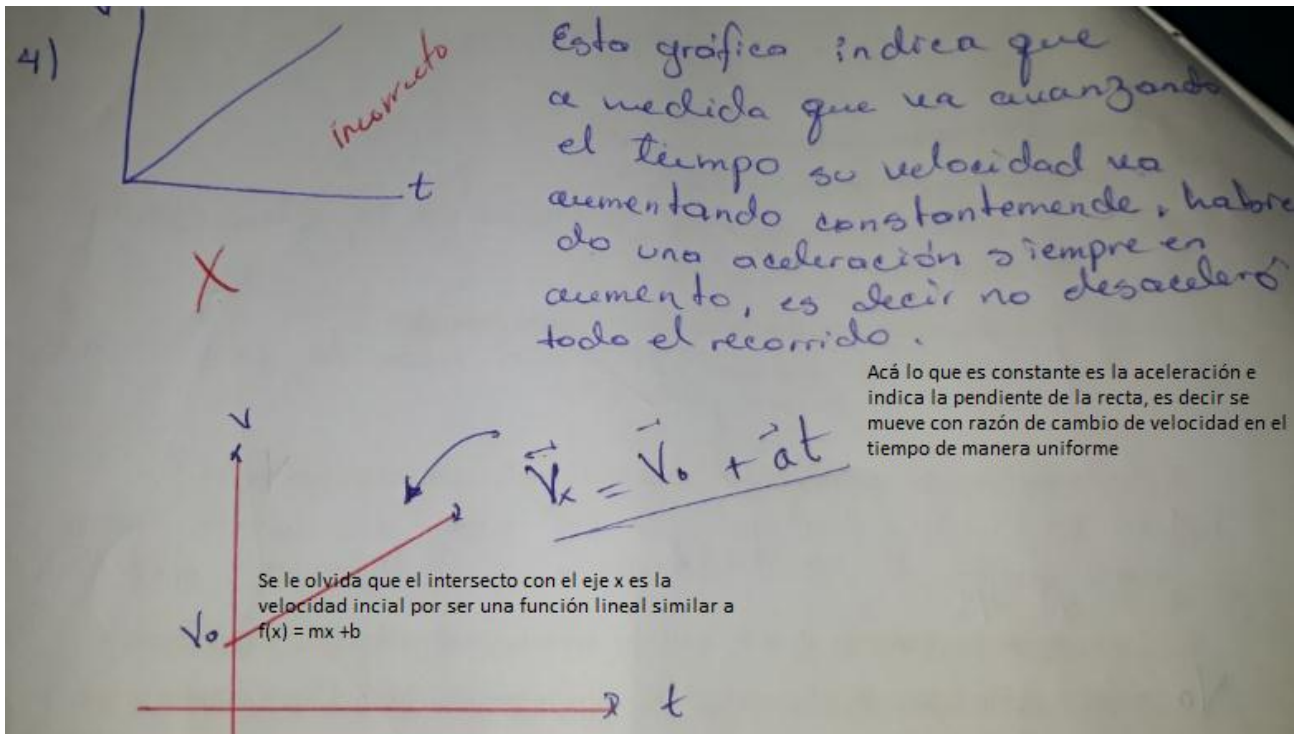 4)
t
incorrecto
X
Esta gráfica indica que
a medida que va avanzando
el tiempo su velocidad va
aumentando constantemende, habie
do una aceleración siempre en
aumento, es decir no desaceleró
todo el recorrido.
Acá lo que es constante es la aceleración e
indica la pendiente de la recta, es decir se
mueve con razón de cambio de velocidad en el
tiempo de manera uniforme
V
V⃗x = V⃗o + a⃗t
Se le olvida que el intersecto con el eje x es la
velocidad incial por ser una función lineal similar a
f(x) = mx +b
Vo
t